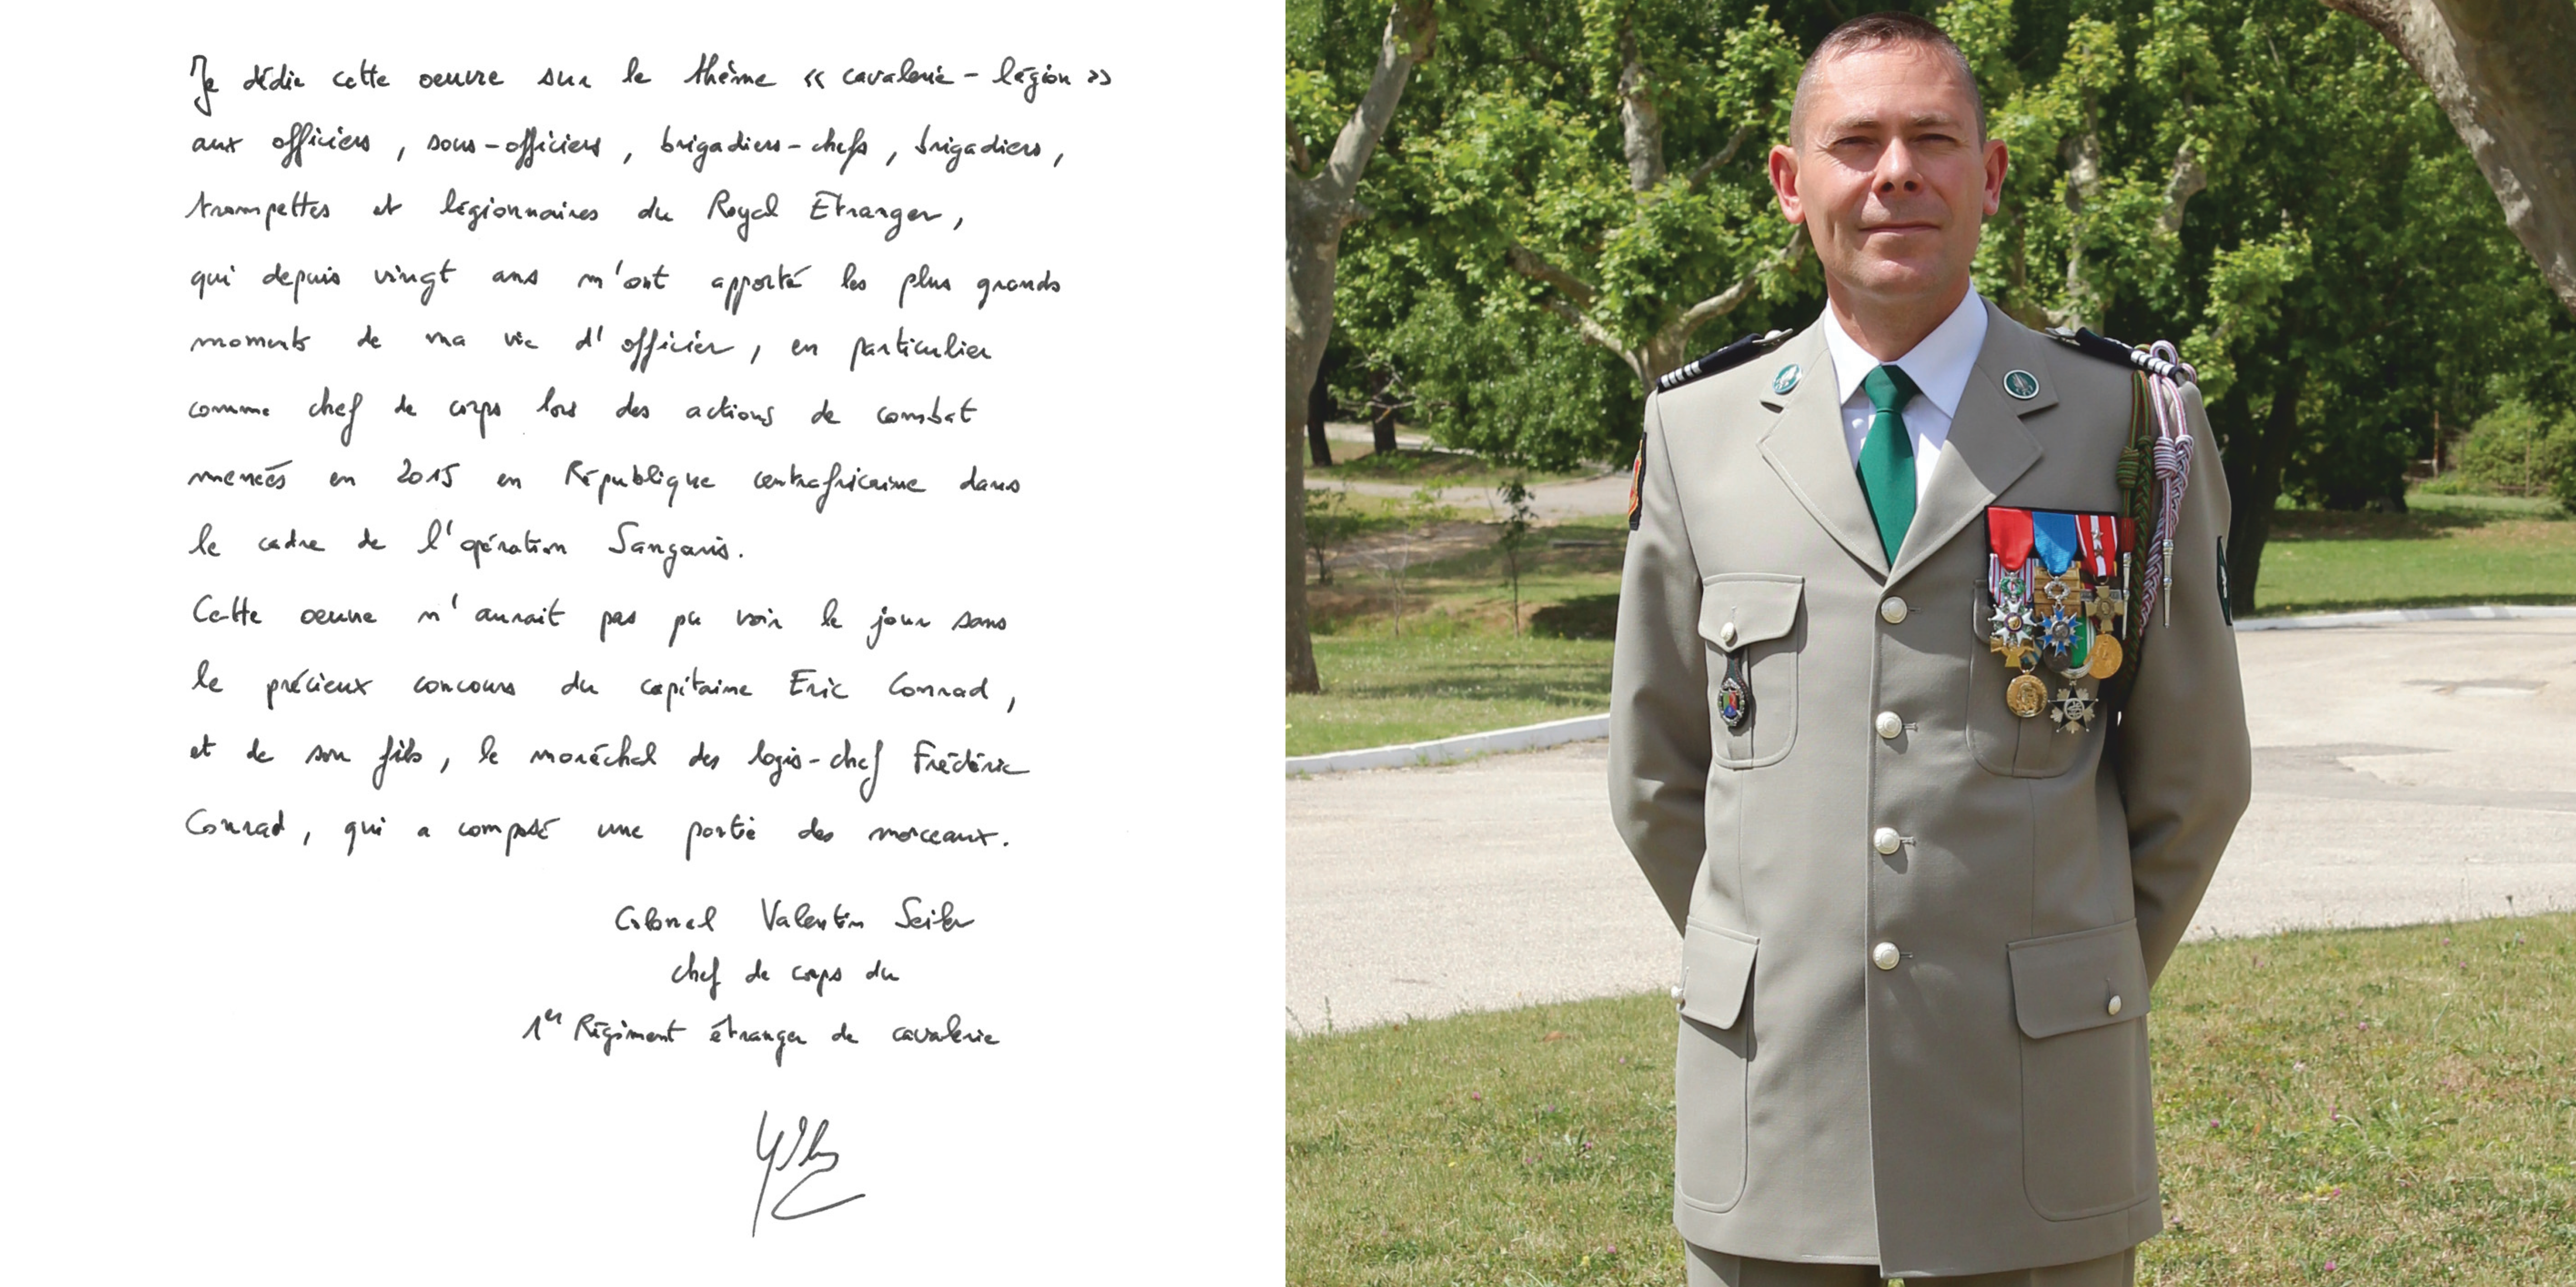 Je dédie cette oeuvre sur le thème « cavalerie - légion »
aux officiers, sous-officiers, brigadiers-chefs, brigadiers,
trompettes et légionnaires du Royal Etranger,
qui depuis vingt ans m'ont apporté les plus grands
moments de ma vie d'officier, en particulier
comme chef de corps lors des actions de combat
menées en 2015 en République centrafricaine dans
le cadre de l'opération Sangaris.
Cette oeuvre n'aurait pas pu voir le jour sans
le précieux concours du capitaine Eric Conrad,
et de son fils, le maréchal des logis-chef Frédéric
Conrad, qui a composé une partie des morceaux.
Colonel Valentin Seiler
chef de corps du
1er Régiment étranger de cavalerie